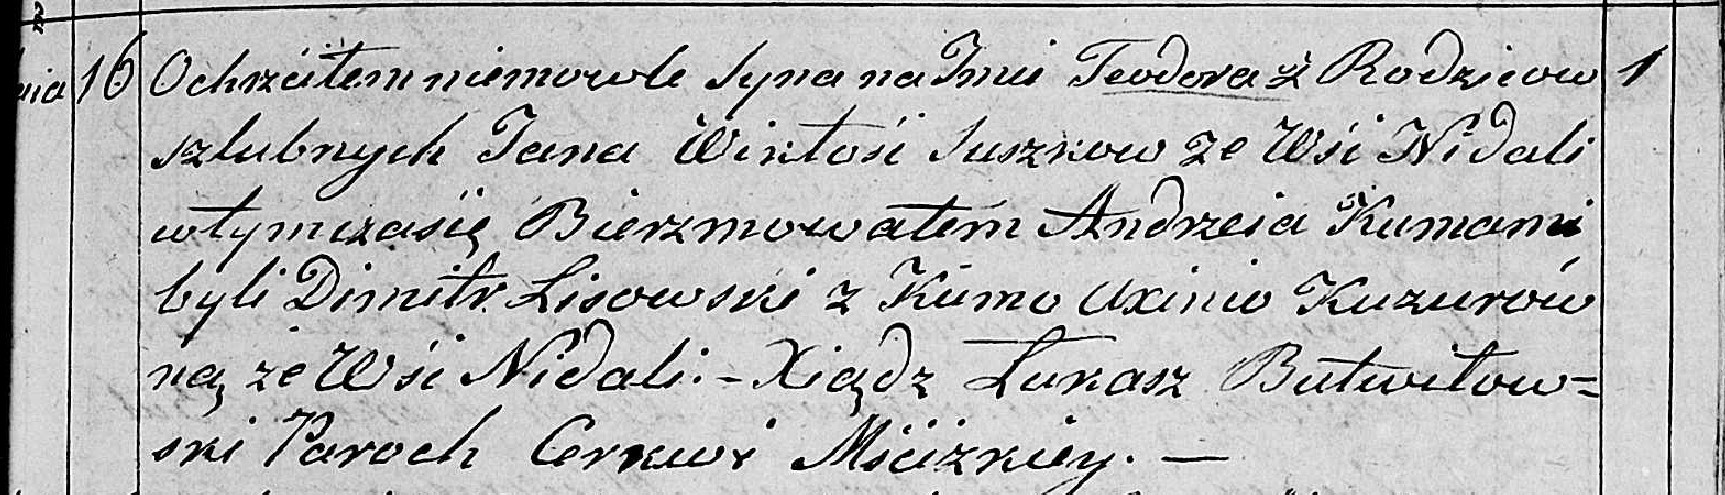 nia 16 Ochrzciłem niemowle syna na Imie Teodora z Rodzicow 1
szlubnych Jana Wiktosi Suszkow ze Wsi Nidali
wtymczasię Bierzmowałem Andrzeia Kumami
byli Dimitr Lisowski z Kumo Axinio Kuzurów
ną ze Wsi Nidali. - Xiądz Łukasz Butwiłow=
ski Paroch Cerkwi Mścizkiey. —